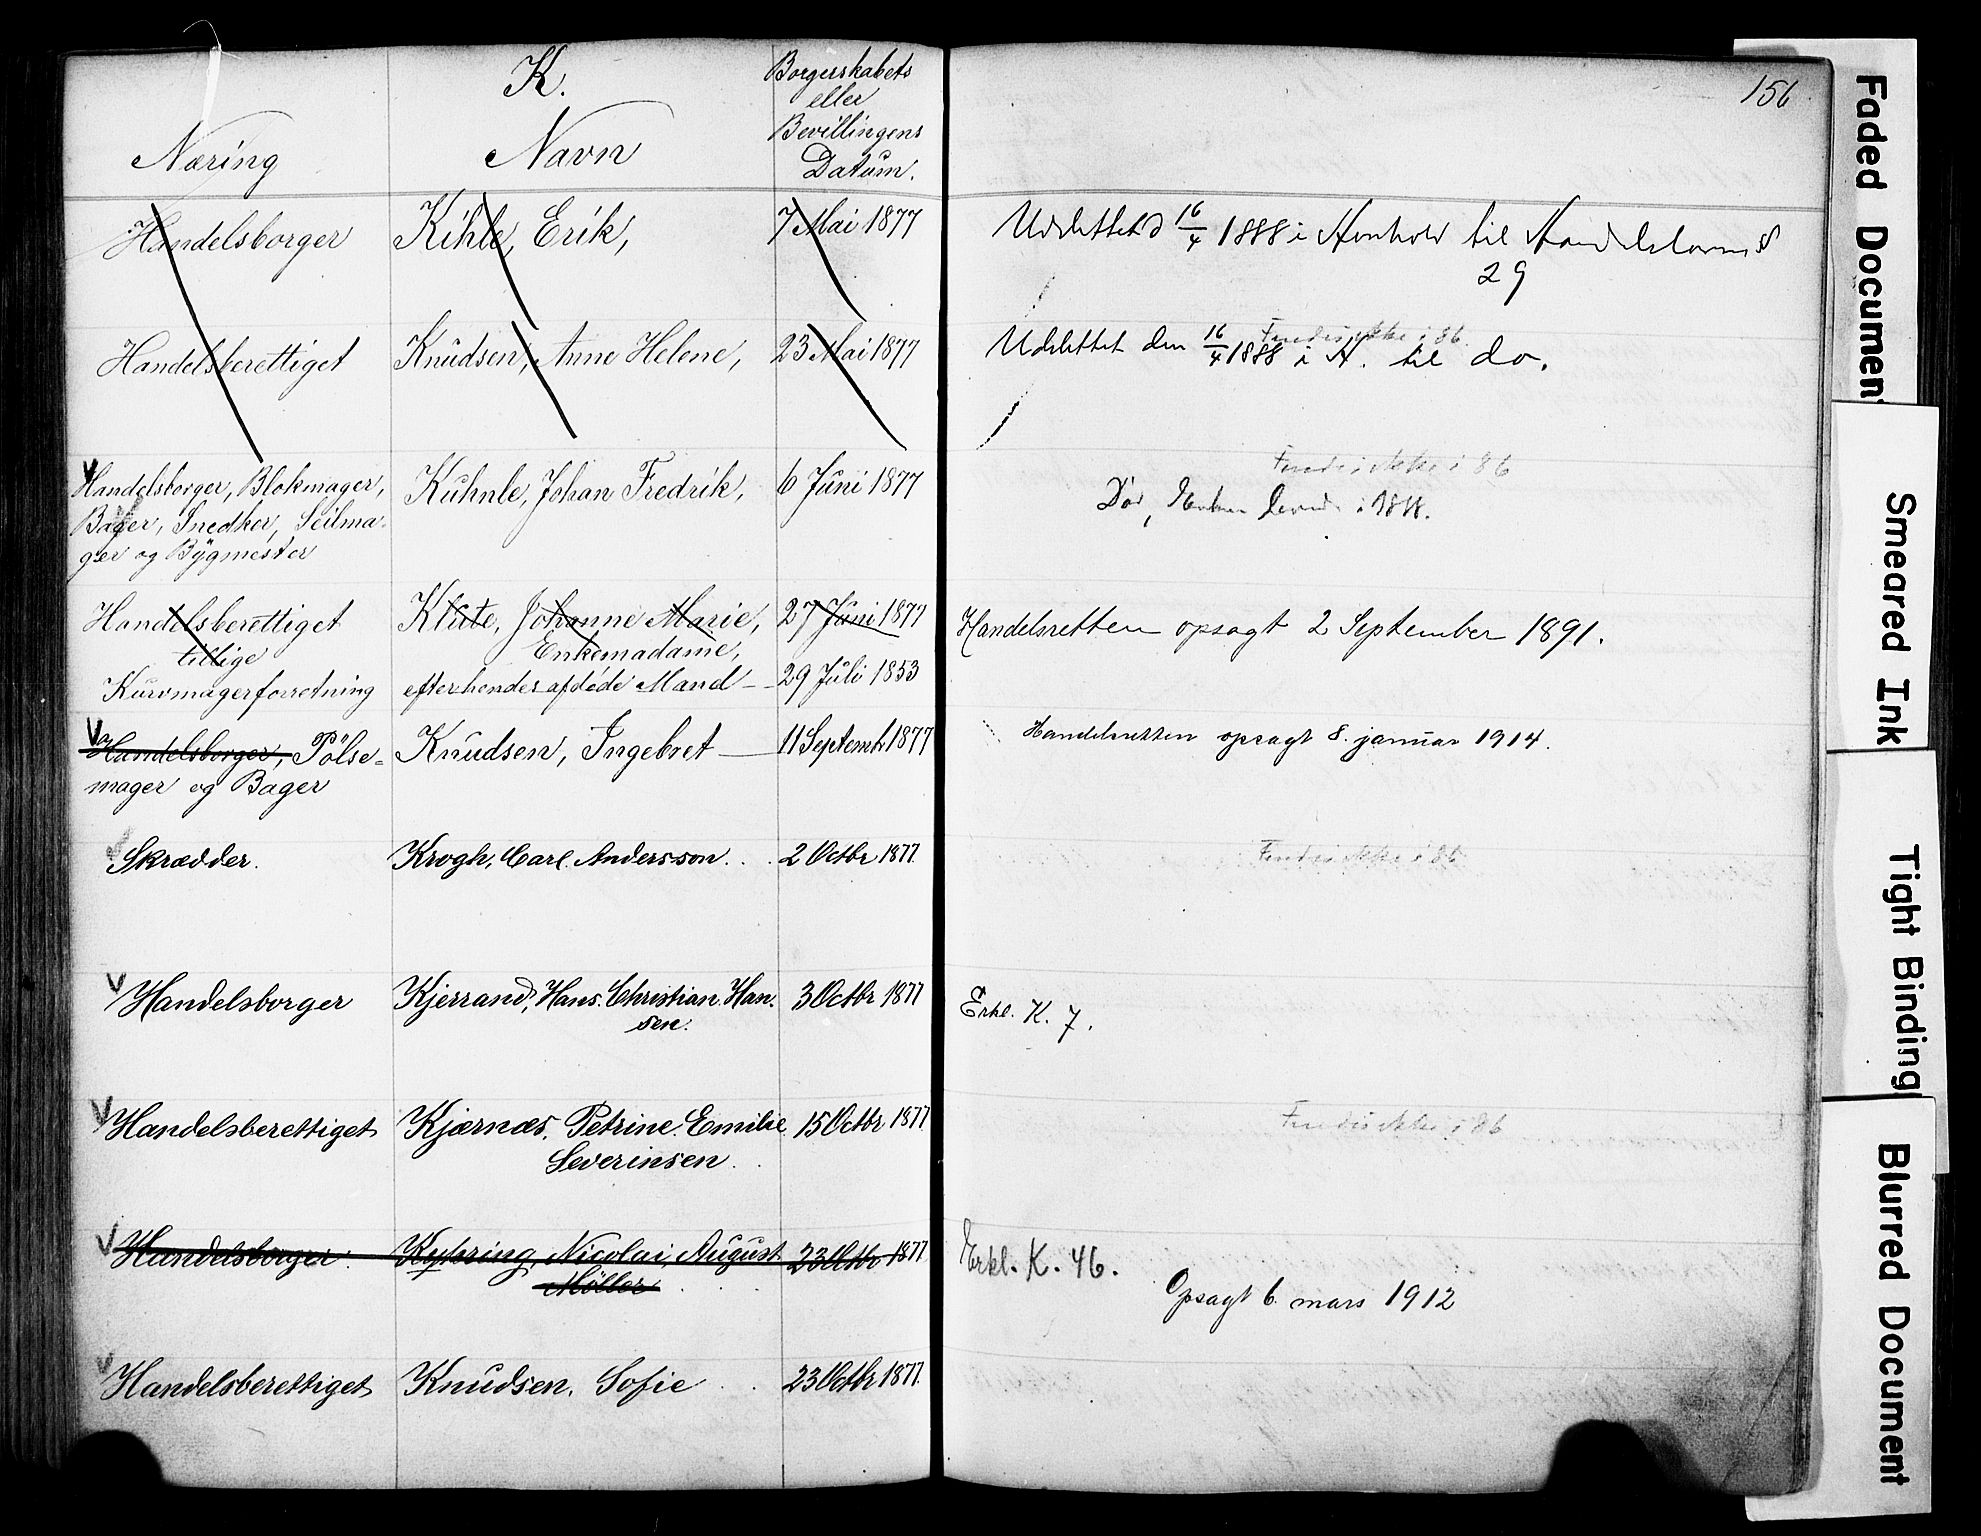 K.
Næring
Navn
Borgerskabets
eller
Bevillingens
Datum.
156
Handelsborger
Kihle, Erik,
7 Mai 1877
Udslettet d 16/4 1888 i Henhold til Handelslovens §
29
Handelsberettiget
Knudsen, Anne Helene,
23 Mai 1877
Findes ikke i 86
Udslettet den 16/4 1888 i H. til do.
Handelsborger, Blokmager,
Bager, Snedker, Seilma-
ger og Bygmester
Kuhnle, Johan Fredrik,
6 Juni 1877
Findes ikke i 86
Død, Enken i 1888.
Handelsberettiget
tillige
Kurvmagerforretning
Klute, Johanne Marie,
Enkemadame,
efter hendes afdøde Mand -
27 Juni 1877
29 Juli 1853
Handelsretten opsagt 2 September 1891.
Handelsborger, Pölse=
mager og Bager
Knudsen, Ingebret
11 Septembr 1877
Handelsretten opsagt 8. januar 1914.
Skrædder.
Krogh, Carl Andersson
2 Octbr 1877
Findes ikke i 86
Handelsborger
Kjerrand, Hans Christian Han-
sen.
3 Octbr 1877
Erkl. K. 7.
Handelsberettiget
Kjærnæs, Petrine Emilie
Severinsen
15 Octbr 1877
Findes ikke i 86
Handelsborger
Kykring, Nicolai August
Møller
23 Octbr 1877
Erkl. K. 46.
Opsagt 6. mars 1912
Handelsberettiget
Knudsen, Sofie
23 Octbr 1877
Faded Document
Smeared Ink
Tight Binding
Blurred Document